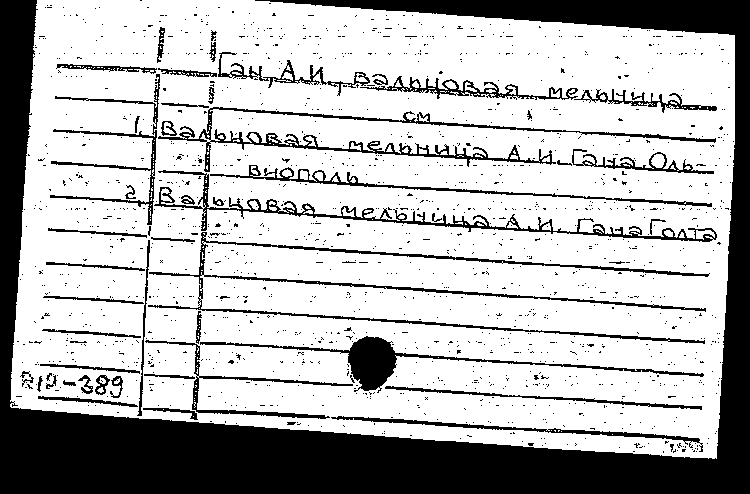 Ган, А.И., вальцовая мельница
см
1. Вальцовая мельница А.И. Гана Оль-
виополь
2. Вальцовая мельница А.И. Гана Голта
-389